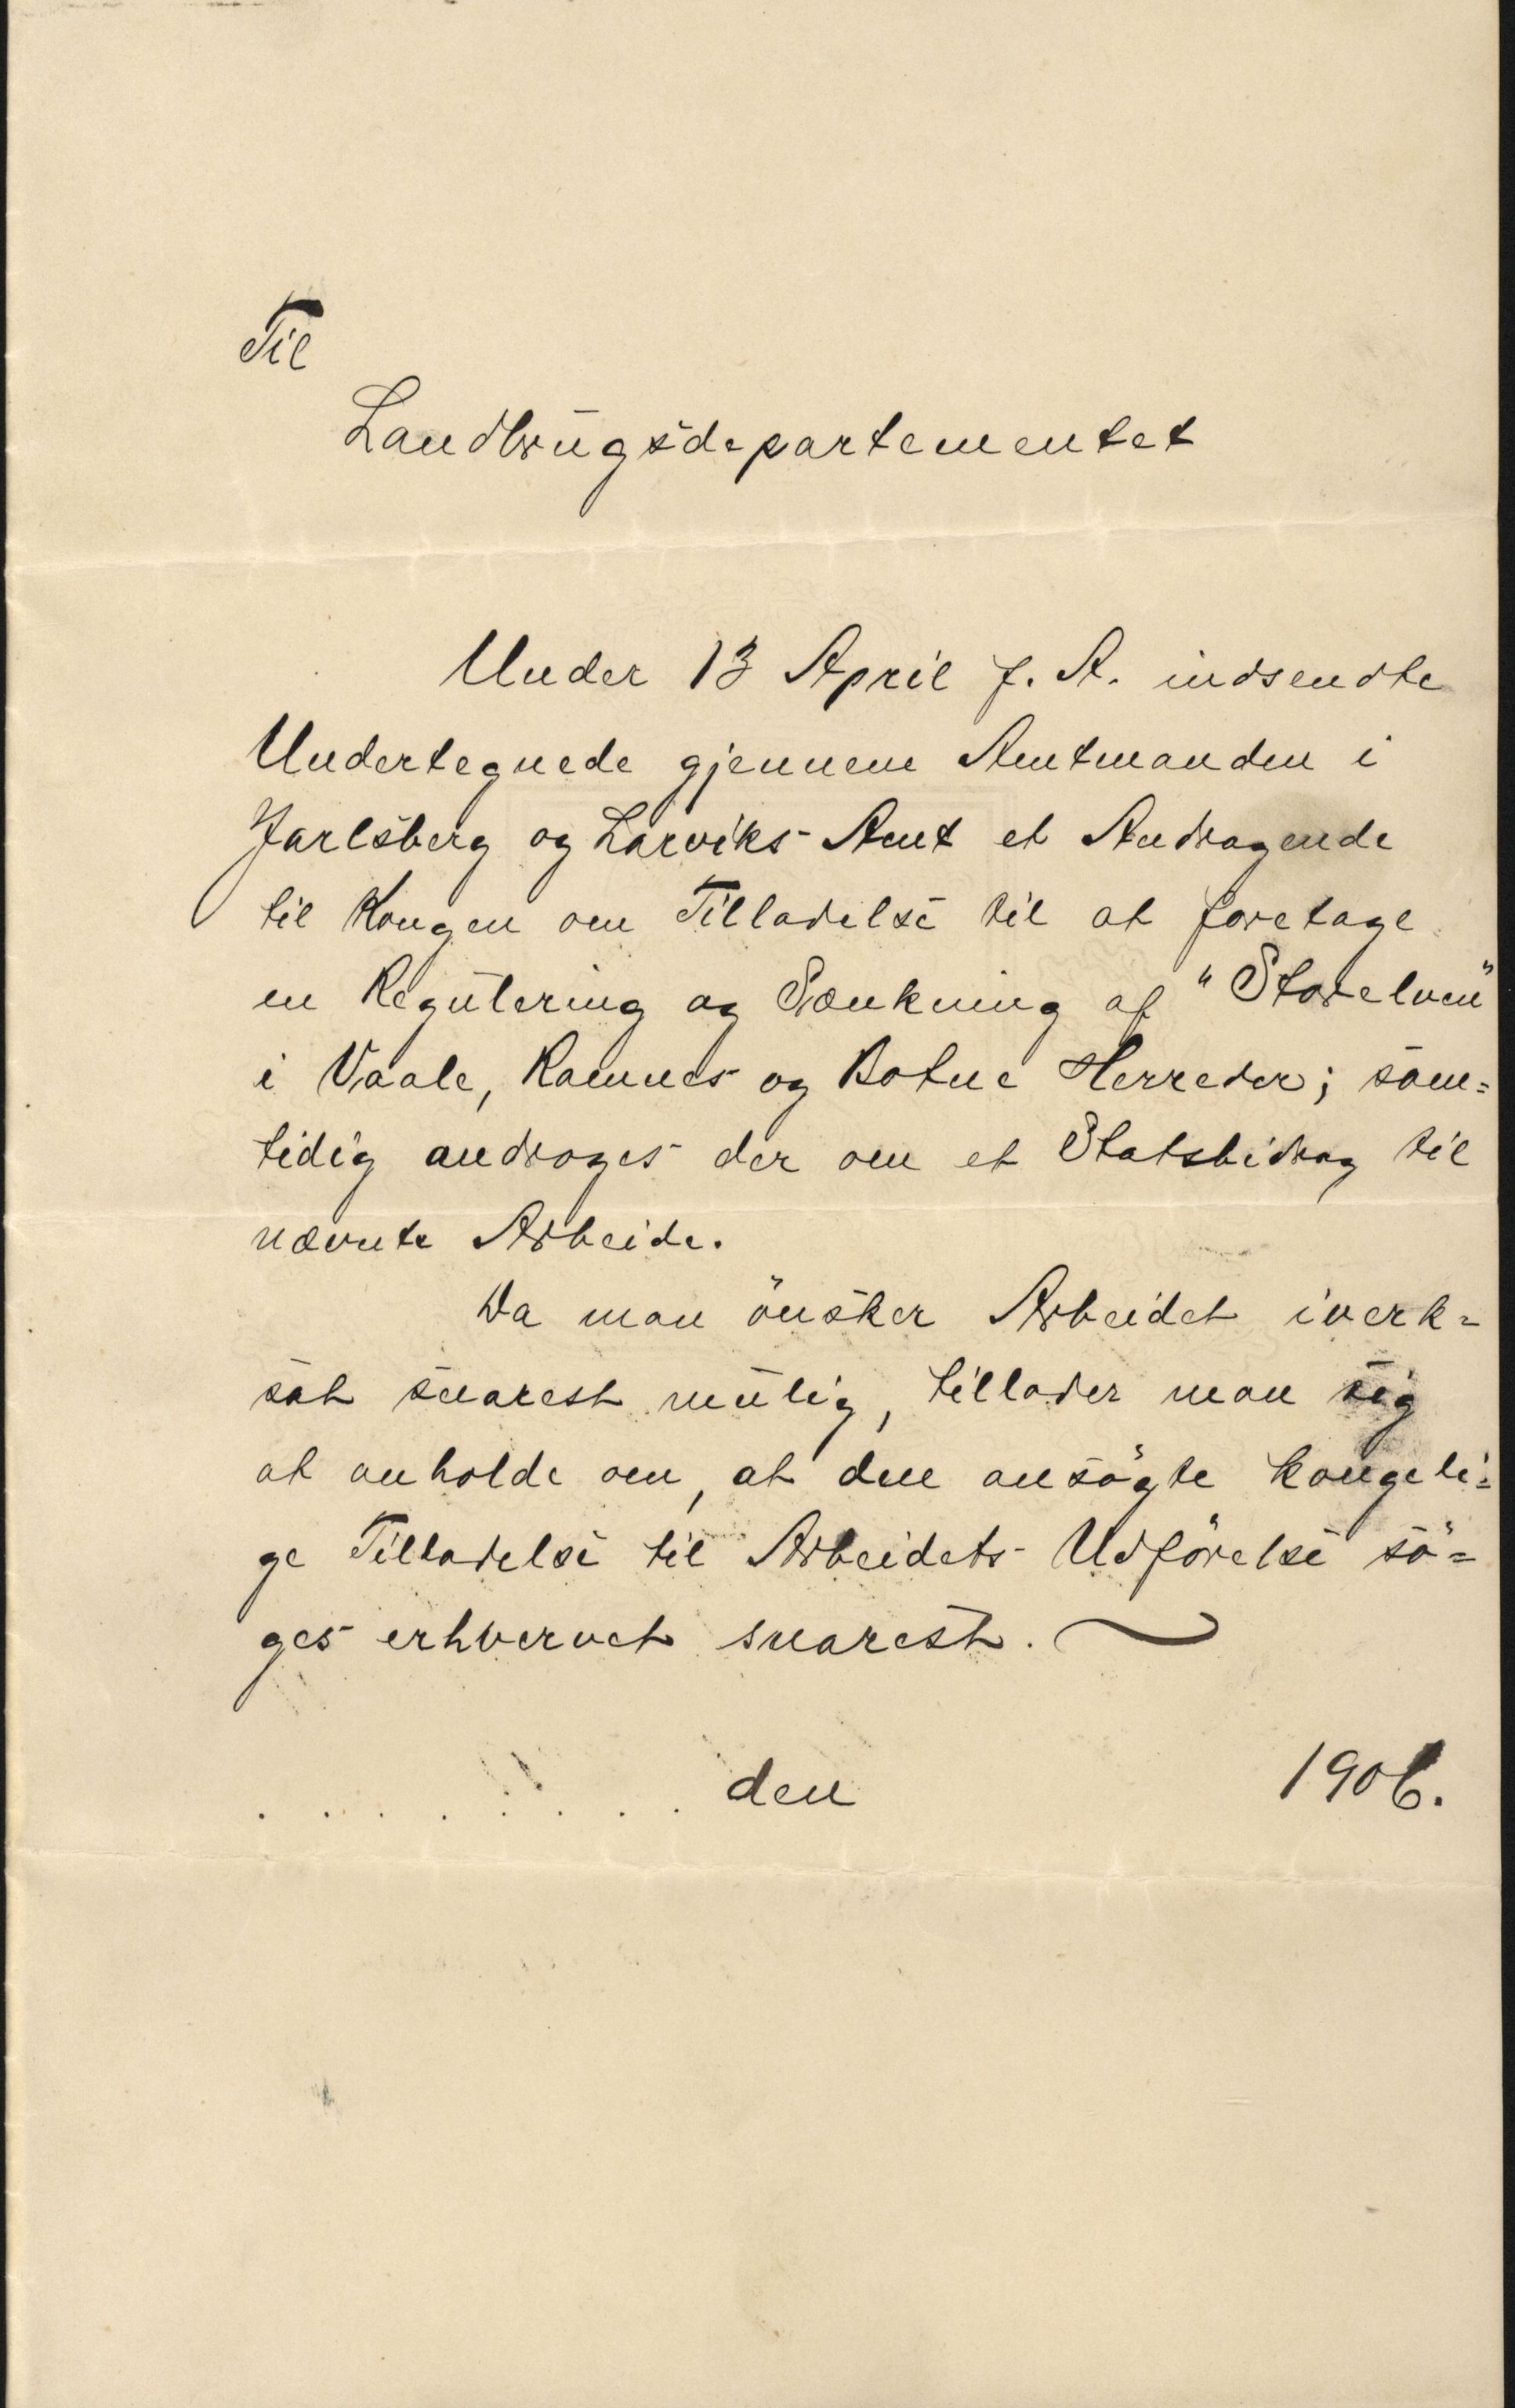 Til
Landbrugsdepartementet
Under 13 April f. A. indsendte
Undertegnede gjennem Amtmanden i
Jarlsberg og Larviks Amt et Andragende
til Kongen om Tilladelse til at foretage
en Regulering og Sænkning af "Storelven"
i Vaale, Ramnes og Botne Herreder; sam=
tidig androges der om et Statsbidrag til
nævnte Arbeide.
Da man önsker Arbeidet iverk=
sat snarest mulig, tillader man sig
at anholde om, at den ansögte kongeli=
ge Tilladelse til Arbeidets Udförelse sö=
ges erhvervet snarest.
. . . . . . . . den 1906.